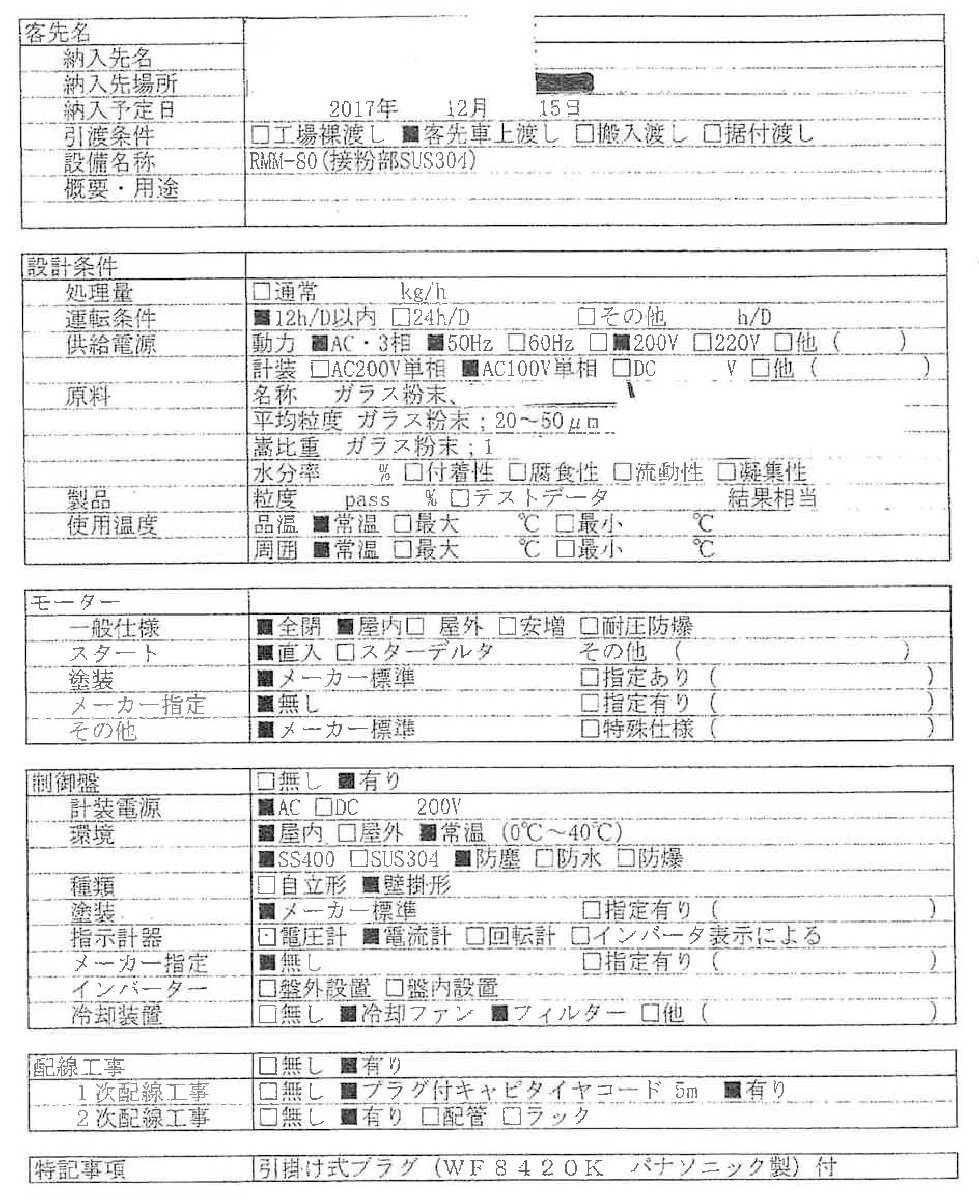 客先名
納入先名
納入先場所
納入予定日 2017年 12月 15日
引渡条件 □工場裸渡し ■客先車上渡し □搬入渡し □据付渡し
設備名称 RMM-80(接粉部SUS304)
概要・用途
設計条件
処理量 □通常 kg/h
運転条件 ■12h/D以内 □24h/D □その他 h/D
供給電源 動力 ■AC・3相 ■50Hz □60Hz □■200V □220V □他 ( )
計装 □AC200V単相 ■AC100V単相 □DC V □他 ( )
原料 名称 ガラス粉末、
平均粒度 ガラス粉末；20～50μm
嵩比重 ガラス粉末；1
水分率 % □付着性 □腐食性 □流動性 □凝集性
製品 粒度 pass % □テストデータ 結果相当
使用温度 品温 ■常温 □最大 ℃ □最小 ℃
周囲 ■常温 □最大 ℃ □最小 ℃
モーター
一般仕様 ■全閉 ■屋内□ 屋外 □安増 □耐圧防爆
スタート ■直入 □スターデルタ その他 ( )
塗装 ■メーカー標準 □指定あり ( )
メーカー指定 ■無し □指定有り ( )
その他 ■メーカー標準 □特殊仕様 ( )
制御盤 □無し ■有り
計装電源 ■AC □DC 200V
環境 ■屋内 □屋外 ■常温 (0℃～40℃)
■SS400 □SUS304 ■防塵 □防水 □防爆
種類 □自立形 ■壁掛形
塗装 ■メーカー標準 □指定有り ( )
指示計器 □電圧計 ■電流計 □回転計 □インバータ表示による
メーカー指定 ■無し □指定有り ( )
インバーター □盤外設置 □盤内設置
冷却装置 □無し ■冷却ファン ■フィルター □他 ( )
配線工事 □無し ■有り
1次配線工事 □無し ■プラグ付キャピタイヤコード 5m ■有り
2次配線工事 □無し ■有り □配管 □ラック
特記事項 引掛け式プラグ (ＷＦ８４２０Ｋ パナソニック製) 付